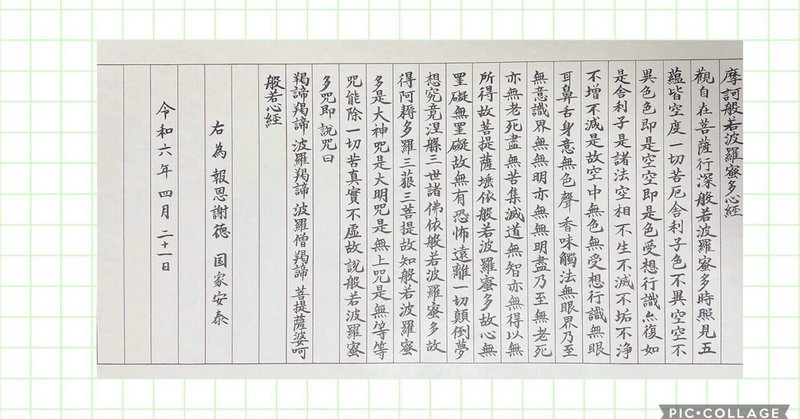 摩訶般若波羅蜜多心経
觀自在菩薩行深般若波羅蜜多時照見五
蘊皆空度一切苦厄舎利子色不異空空不
異色色即是空空即是色受想行識亦復如
是舎利子是諸法空相不生不滅不垢不浄
不増不減是故空中無色無受想行識無眼
耳鼻舌身意無色聲香味觸法無眼界乃至
無意識界無無明亦無無明盡乃至無老死
亦無老死盡無苦集滅道無智亦無得以無
所得故菩提薩埵依般若波羅蜜多故心無
罣礙無罣礙故無有恐怖遠離一切顛倒夢
想究竟涅槃三世諸佛依般若波羅蜜多故
得阿耨多羅三藐三菩提故知般若波羅蜜
多是大神咒是大明咒是無上咒是無等等
咒能除一切苦真實不虚故説般若波羅蜜
多咒即説咒曰
羯諦羯諦 波羅羯諦 波羅僧羯諦 菩提薩婆呵
般若心経
右為 報恩謝徳 国家安泰
令和六年四月二十一日
PIC•COLLAGE